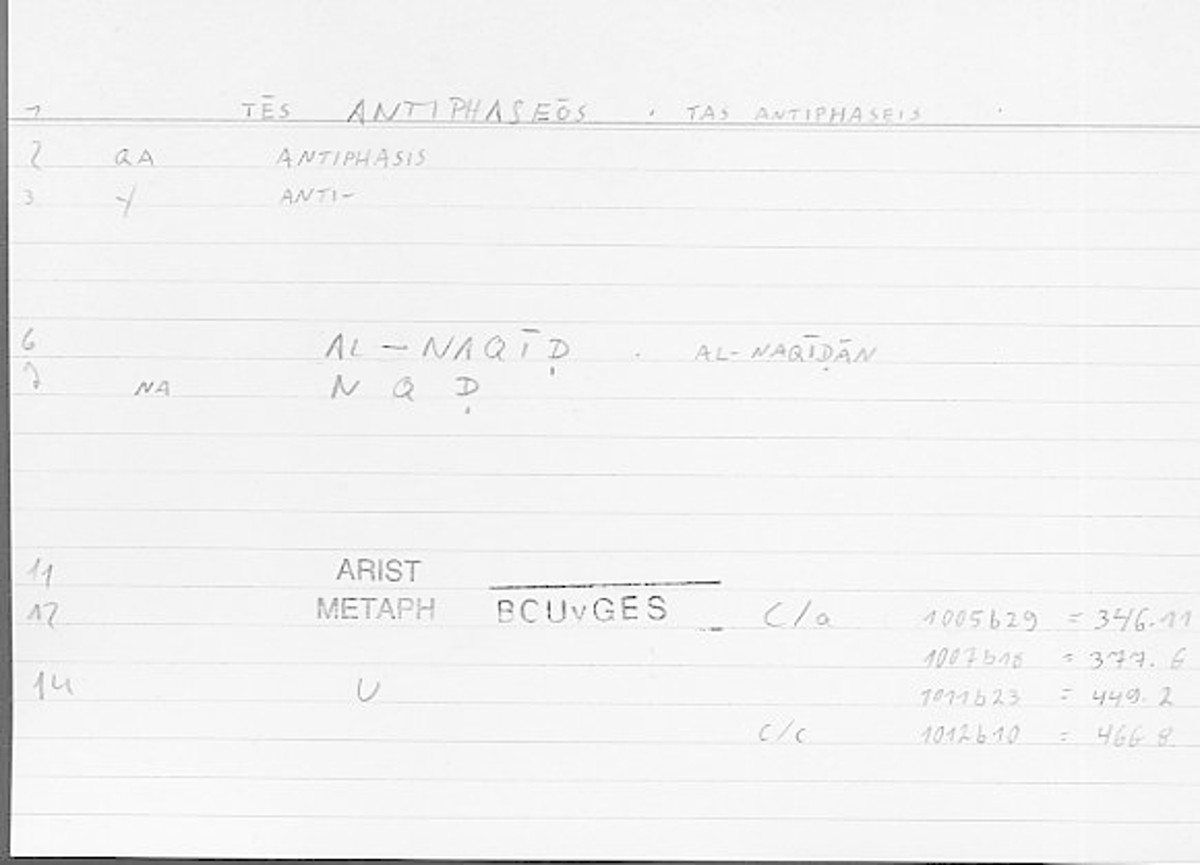 1 TĒS ANTIPHASEŌS . TAS ANTIPHASEIS .
2 QA ANTIPHASIS
3 Y ANTI-
6 AL-NAQĪḌ . AL-NAQĪḌĀN
7 NA N Q Ḍ
11 ARIST
12 METAPH BCUvGES _ C/a 1005b29 = 346.11
1007b18 = 377.6
14 U 1011b23 = 449.2
C/c 1012b10 = 466 8